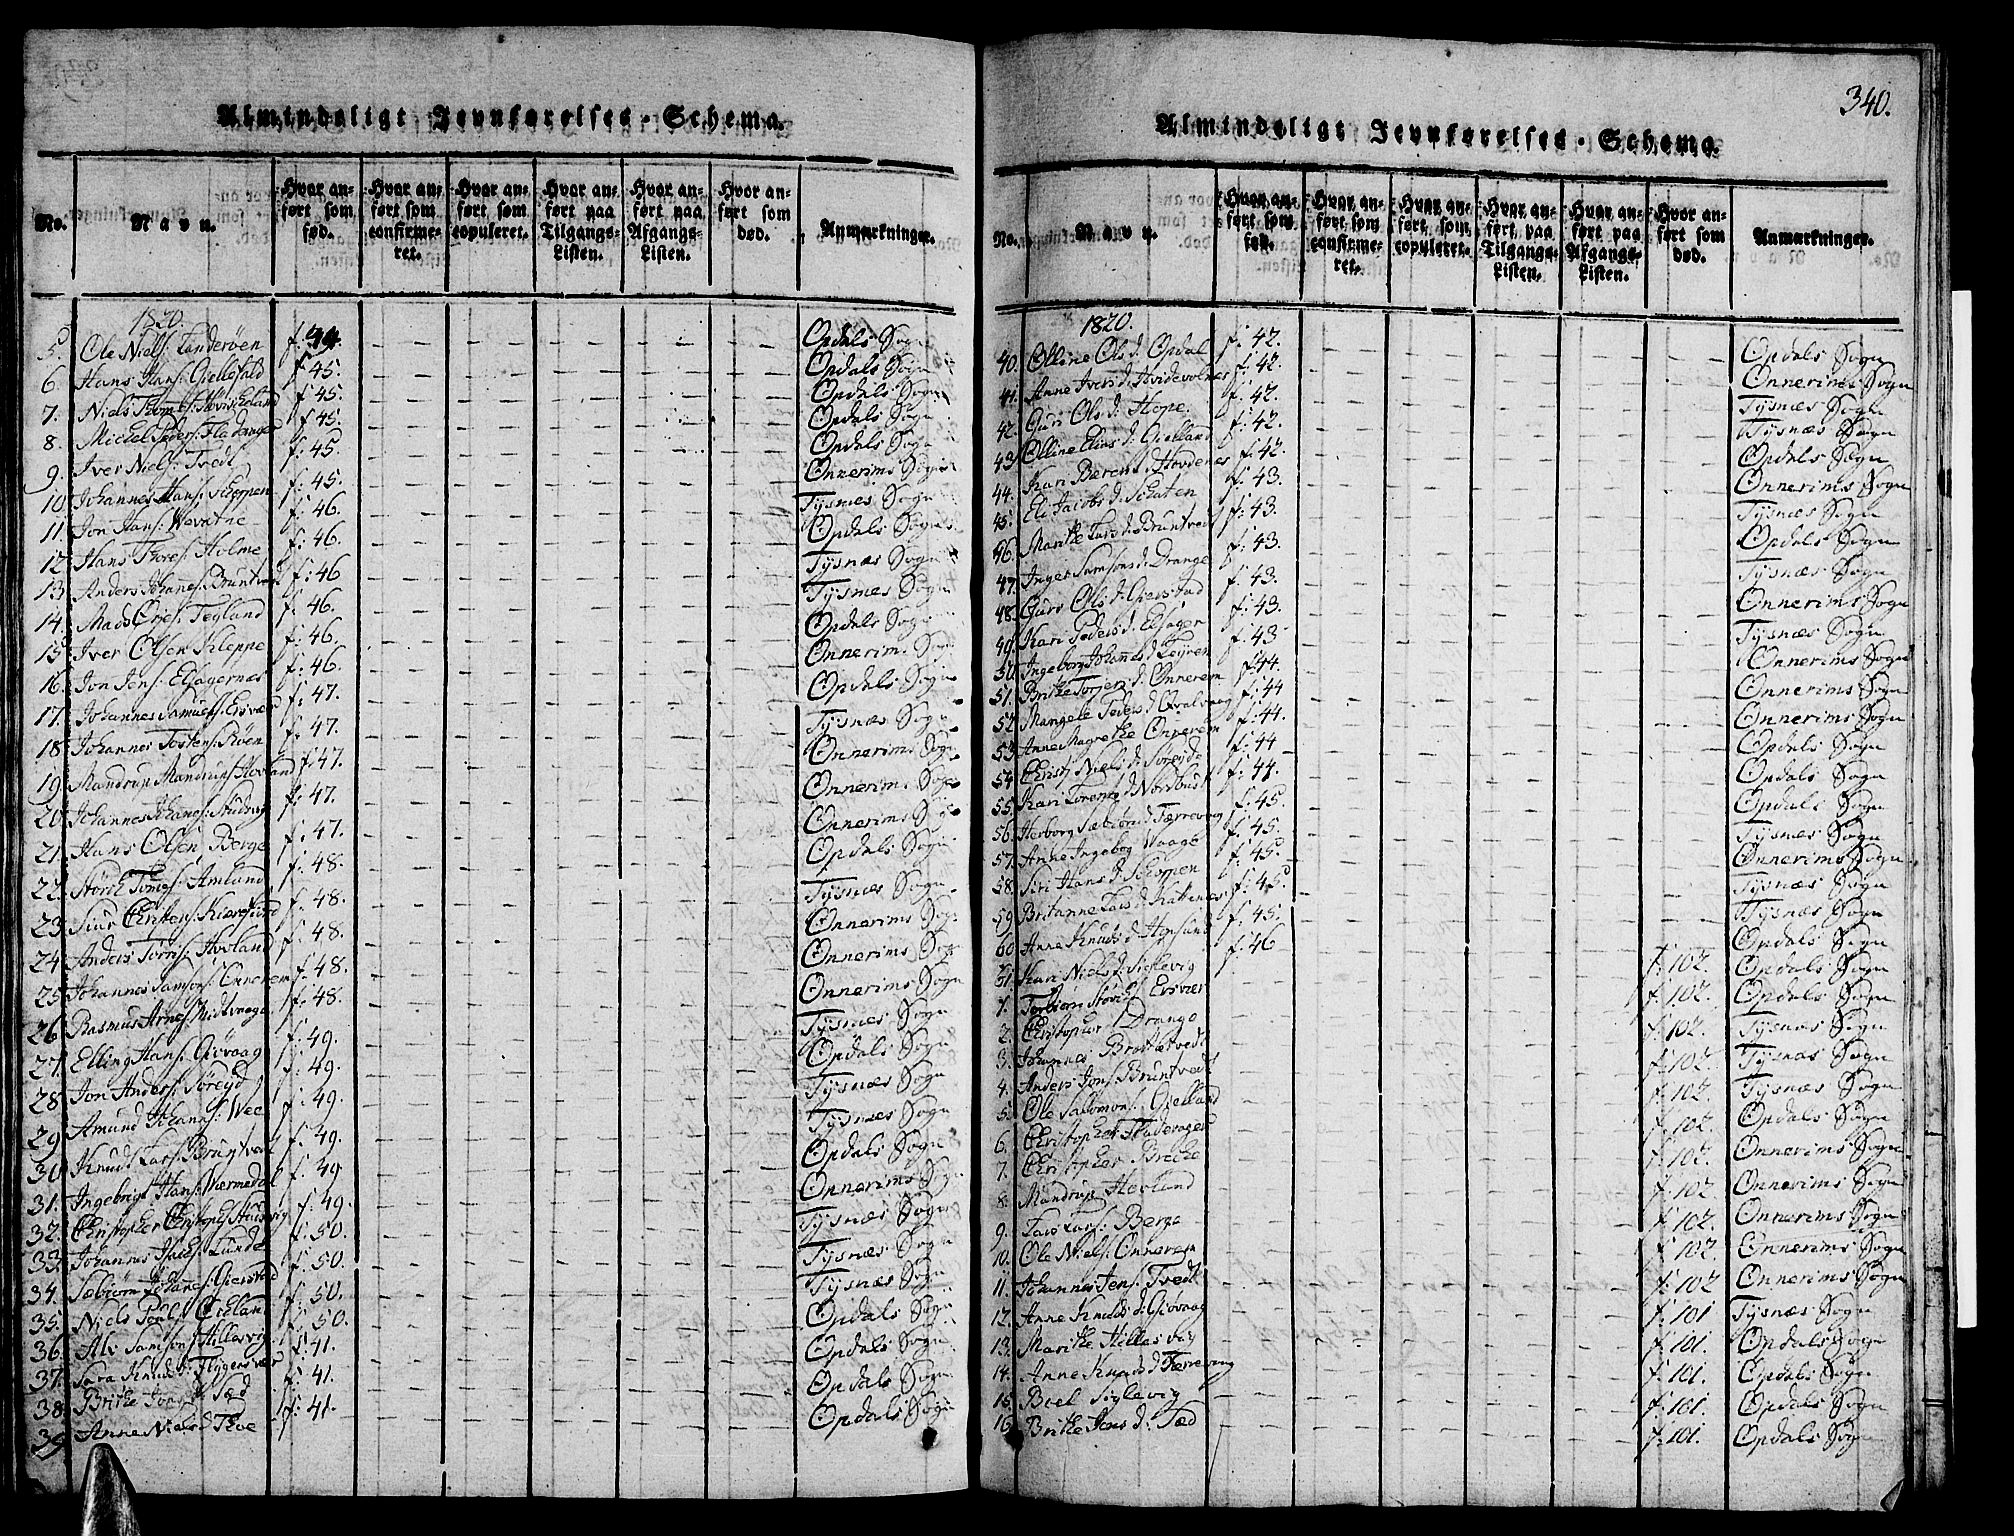 340.
Almindeligt Jevnførelses-Schema.
No. Navn. Hvor anført som fød. Hvor anført som confirmeret. Hvor anført som copuleret. Hvor anført paa Tilgangs-Listen. Hvor anført paa Afgangs-Listen. Hvor anført som død. Anmærkninger.
1820.
5. Ole Niels: Landerøen f: 44. Opdals Sogn
6. Hans Hans: Gjellefald f 45. Opdals Sogn
7. Niels f 45. Opdals Sogn
8. Michel Peders: Fladanger f 45. Opdals Sogn
9. Iver Niels: Tvedt f: 45. Opdals Sogn
10. Johannes Hans: Schorpen f: 45. Onnerims Sogn
11. Jon Hans: Wevatne f: 46. Tysnæs Sogn
12. Hans Thores: Holme f: 46. Opdals Sogn
13. Anders Johanes: Bruntved f: 46 Tysnæs Sogn
14. Mads Tegland f: 46. Tysnæs Sogn
15. Iver Olsen Kleppe f: 46. Opdals Sogn
16. Jon Jens: Elsagernes f: 46. Onnerim: Sogn
17. Johannes Samuels: Ersvær f: 47. Opdals Sogn
18. Johannes Tostens: Røen f: 47. Tysnæs Sogn
19. Mandrup Mandrups: Hovland f: 47. Onnerims Sogn
20. Johannes Johanes: f: 47. Onnerim: Sogn
21. Hans Olsen Berge f: 47. Onnerims Sogn
22. Størck Amland f: 48. Opdals Sogn
23. Siur f: 48. Tysnæs Sogn
24. Anders Hovland f: 48. Onnerims Sogn
25. Johannes Samsons: Onnerem f: 48. Onnerims Sogn
26. Rasmus Arnes: Midtvaage f: 48. Onnerims Sogn
27. Elling Hans: Giøvaag f: 49. Tysnæs Sogn
28. Jon Anders: Søreyd f: 49. Opdals Sogn
29. Amund Johans: Wee f: 49. Tysnæs Sogn
30. Knud Lars: Bruntved f: 49. Tysnæs Sogn
31. Ingebrigt Hans: Wermedal f: 49 Opdals Sogn
32. Christopher f: 49. Onnerims Sogn
33. Johannes Lunde f: 50. Tysnæs Sogn
34. Sæbiørn Johanes: Gierstad f: 50. Tysnæs Sogn
35. Niels f: 50. Tysnæs Sogn
36. Als Samson: Hillesvig f: 50. Opdals Sogn
37. Sara Knuds d: f: 41. Opdals Sogn
38. Brithe Sæd f: 41. Opdals Sogn
39. Anne Niels d: Thoe f: 41. Opdals Sogn
Almindeligt Jevnførelses-Schema.
No. Navn. Hvor anført som fød. Hvor anført som confirmeret. Hvor anført som copuleret. Hvor anført paa Tilgangs-Listen. Hvor anført paa Afgangs-Listen. Hvor anført som død. Anmærkninger.
1820.
40. Olline Ols d: Opdal f: 42. Opdals Sogn
41. Anne Ivers d: Hvidevolnes f: 42. Onnerims Sogn
42. Guri Ols d: Hope f: 42. Tysnæs Sogn
43. Olline Elins d: Gjelland f: 42. Tysnæs Sogn
44. Kari Berent d: Hovdenes f: 42. Opdals Sogn
45. Eli Jacobs d: Schaten f: 43. Onnerims Sogn
46. Marithe Lars d: Bruntved f: 43. Tysnæs Sogn
47. Inger Samsons d: Drange f: 43. Opdals Sogn
48. Guro Ols d: Gierstad f: 43. Tysnæs Sogn
49. Kari Peders d: Elsager f: 43. Onnerims Sogn
50. Ingeborg Johannes d: f: 43 Tysnæs Sogn
51. Brithe Torgers d: Onnerem f 44. Onnerims Sogn
52. Mangele Peders d: f: 44 Onnerims Sogn
53. Anne Magrethe Onnerem f: 44. Onnerims Sogn
54. Christj Niels d: Søreyde f: 44 Opdals Sogn
55. Kari Lorents d: Nordhus f: 44. Opdals Sogn
56. Herborg Sæbiørn d: Færrevaag f: 45. Opdals Sogn
57. Anne Ingebog Waage f: 45. Tysnæs Sogn
58. Siri Hans d: Schorpen f: 45. Onnerims Sogn
59. Britanne Lars d: Hattenes f: 45. Tysnæs Sogn
60. Anne Knuds d: Hopsund f: 45. Tysnæs Sogn
61. Kari Niels d: Siglevig f: 46 Opdals Sogn
1. Torbiørn Ersvær f: 102. Opdals Sogn
2. Christopher Drange f: 102. Opdals Sogn
3. Johannes f: 102. Tysnæs Sogn
4. Anders Jons: Bruntvedt f: 102. Tysnæs Sogn
5. Ole Salomons: Gjelland f: 102. Tysnæs Sogn
6. Christopher f: 102. Opdals Sogn
7. Christopher f: 102. Onnerims Sogn
8. Mandrup Hovland f: 102. Onnerims Sogn
9. Lars Lars: Berge f: 102. Onnerims Sogn
10. Ole Niels: Onnerem f: 102 Onnerims Sogn
11. Johannes Jens: Tvedt f: 102 Onnerims Sogn
12. Anne Knuds d: Giøvaag f: 101 Tysnæs Sogn
13. Marithe Hillesvig f: 101. Opdals Sogn
14. Anne Knuds d: f: 101. Opdals Sogn
15. Boel Siglevig f: 101. Opdals Sogn
16. Brithe Jens d: Sæd f: 101. Opdals Sogn